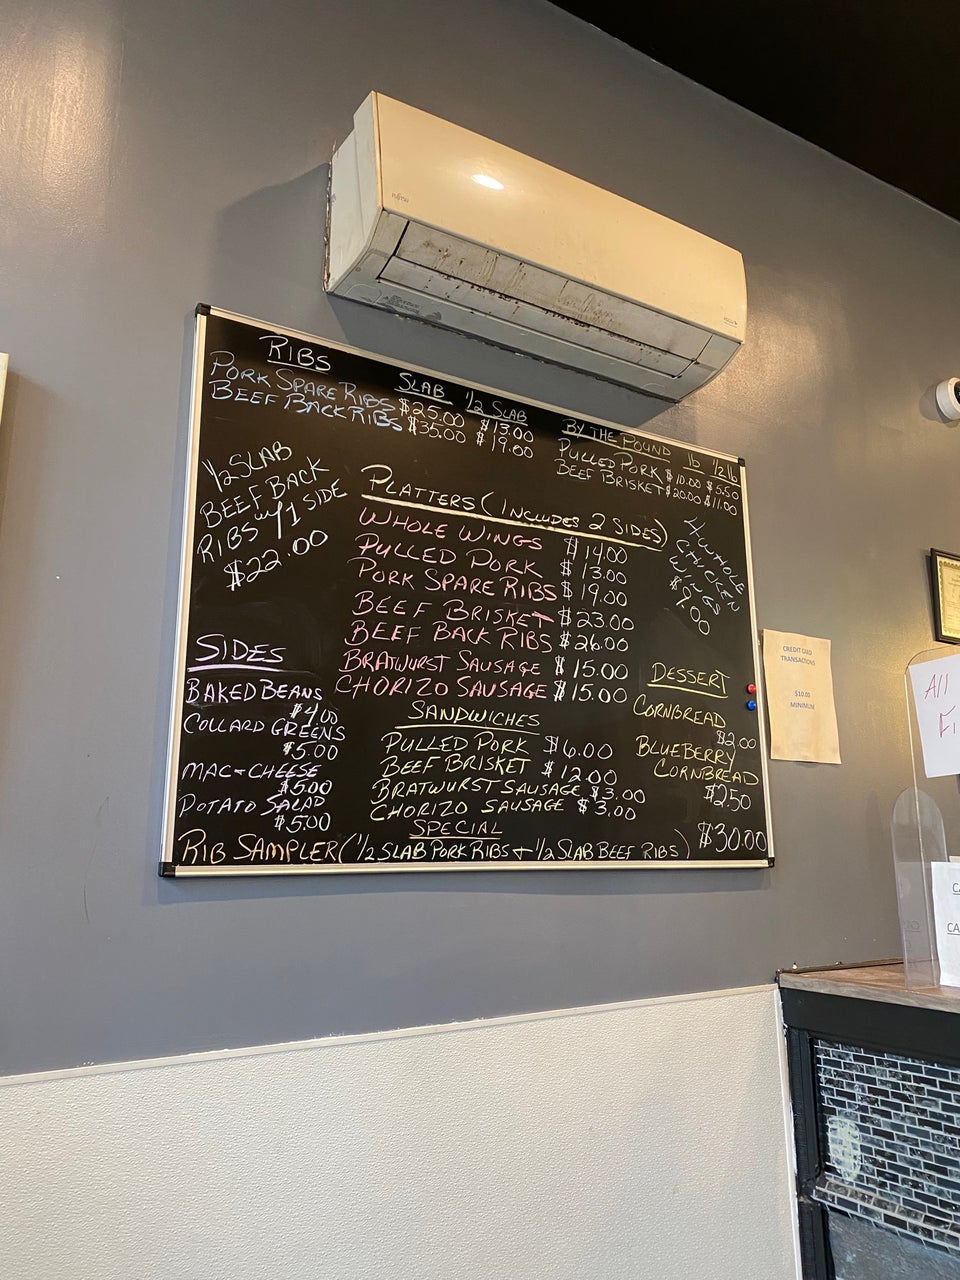 FUJITSU
RIBS SLAB 1/2 SLAB
PORK SPARE RIBS $25.00 $13.00
BEEF BACK RIBS $35.00 $19.00
BY THE POUND lb 1/2 lb
PULLED PORK $10.00 $5.50
BEEF BRISKET $20.00 $11.00
1/2 SLAB
BEEF BACK
RIBS w/ 1 SIDE
$22.00
PLATTERS (INCLUDES 2 SIDES)
WHOLE WINGS $14.00
PULLED PORK $13.00
PORK SPARE RIBS $19.00
BEEF BRISKET $23.00
BEEF BACK RIBS $26.00
BRATWURST SAUSAGE $15.00
CHORIZO SAUSAGE $15.00
4 WHOLE
CHICKEN
WINGS
$9.00
SIDES
BAKED BEANS
$4.00
COLLARD GREENS
$5.00
MAC + CHEESE
$5.00
POTATO SALAD
$5.00
SANDWICHES
PULLED PORK $6.00
BEEF BRISKET $12.00
BRATWURST SAUSAGE $3.00
CHORIZO SAUSAGE $3.00
DESSERT
CORNBREAD
$2.00
BLUEBERRY
CORNBREAD
$2.50
SPECIAL
RIB SAMPLER (1/2 SLAB PORK RIBS + 1/2 SLAB BEEF RIBS) $30.00
CREDIT CARD
TRANSACTIONS
$10.00
MINIMUM
All
Fi
CA